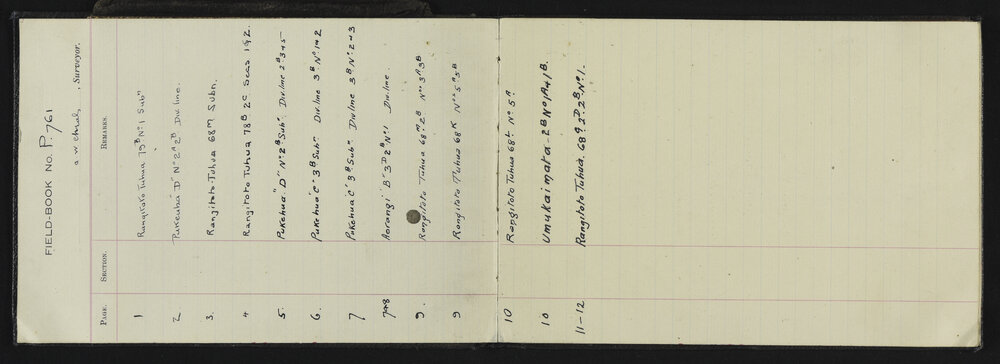 FIELD-BOOK No. P.761
, Surveyor.
PAGE. SECTION. REMARKS.
1 Rangitoto Tuhua 79ᴮ Nº1 Subⁿ
2 Pukeuha "D" Nº 2ᴬ 2ᴮ Div. line.
3. Rangitoto-Tuhua 68M Subn.
4 Rangitoto Tuhua 78ᴮ 2ᶜ Secs 1&2.
5. Pukehua "D" Nº 2ᴮ Subⁿ Div. line 2ᴮ 3+5
6. Pukehua "C" 3ᴮ Subⁿ Div. line 3ᴮ Nº 1+2
7 Pukehua "C" 3ᴮ Subⁿ Div. line 3ᴮ Nº 2+3
7+8 Aorangi "B" 3ᴰ 2ᴮ Nº1 Div. line.
9. Rangitoto Tuhua 68ᴹ 2ᴮ Nºˢ 3ᴬ 3ᴮ
9 Rangitoto Tuhua 68K Nºˢ 5ᴬ 5ᴮ
10 Rangitoto Tuhua 68ᴸ Nº 5ᴬ
10 Umukaimata-2ᴮ Nº 1ᴬ+1ᴮ.
11-12 Rangitoto Tuhua. 68ᵍ 2ᴰ 2ᴮ Nº1.